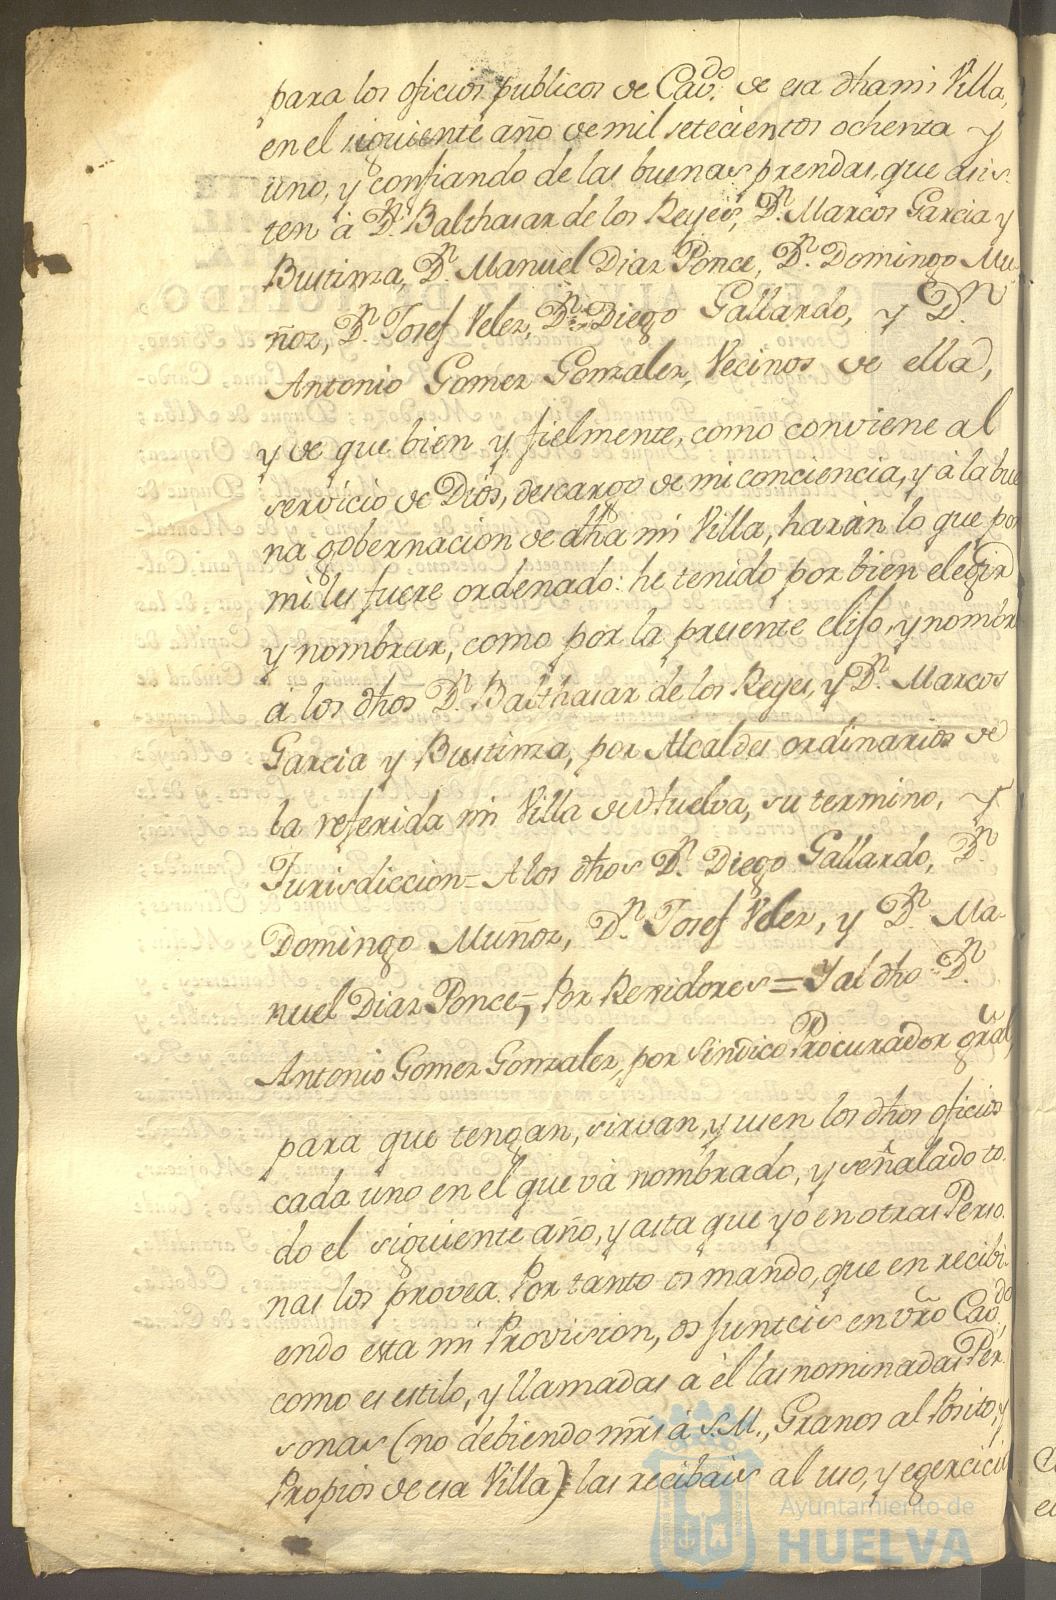 para los oficios publicos de Cav.do de esa dha mi Villa,
en el siguiente año de mil setecientos ochenta y
uno, y confiando de las buenas prendas, que asis-
ten à D.n Balthasar de los Reyes, D.n Marcos Garcia y
Bustinza, D.n Manuel Diaz Ponce, D.n Domingo Mu-
ñoz, D.n Josef Velez, D.n Diego Gallardo, y D.n
Antonio Gomez Gonzalez, Vecinos de ella,
y de que bien y fielmente, como conviene al
servicio de Dios, descargo de mi conciencia, y à la bue
na gobernacion de dha mi Villa, haràn lo que por
mi les fuere ordenado: he tenido por bien elegir
y nombrar, como por la presente elijo, y nombro
à los dhos D.n Balthasar de los Reyes, y D.n Marcos
Garcia y Bustinza, por Alcaldes ordinarios de
la referida mi Villa de Huelva, su termino, y
Jurisdiccion = A los dhos D.n Diego Gallardo, D.n
Domingo Muñoz, D.n Josef Velez, y D.n Ma-
nuel Diaz Ponce, por Regidores = Y al dho D.n
Antonio Gomez Gonzalez, por Sindico Procurador gral,
para que tengan, sirvan, y usen los dhos oficios
cada uno en el que và nombrado, y señalado to
do el siguiente año, y asta que yo en otras Perso
nas los provea. Por tanto os mando, que en recibi-
endo esta mi Provision, os junteis en vro Cav.do,
como es estilo, y llamadas à èl las nominadas Per
sonas (no debiendo mrs à S.M., Granos al Posito, y
Propios de esa Villa) las recibais al uso, y egercicio
Ayuntamiento de
HUELVA